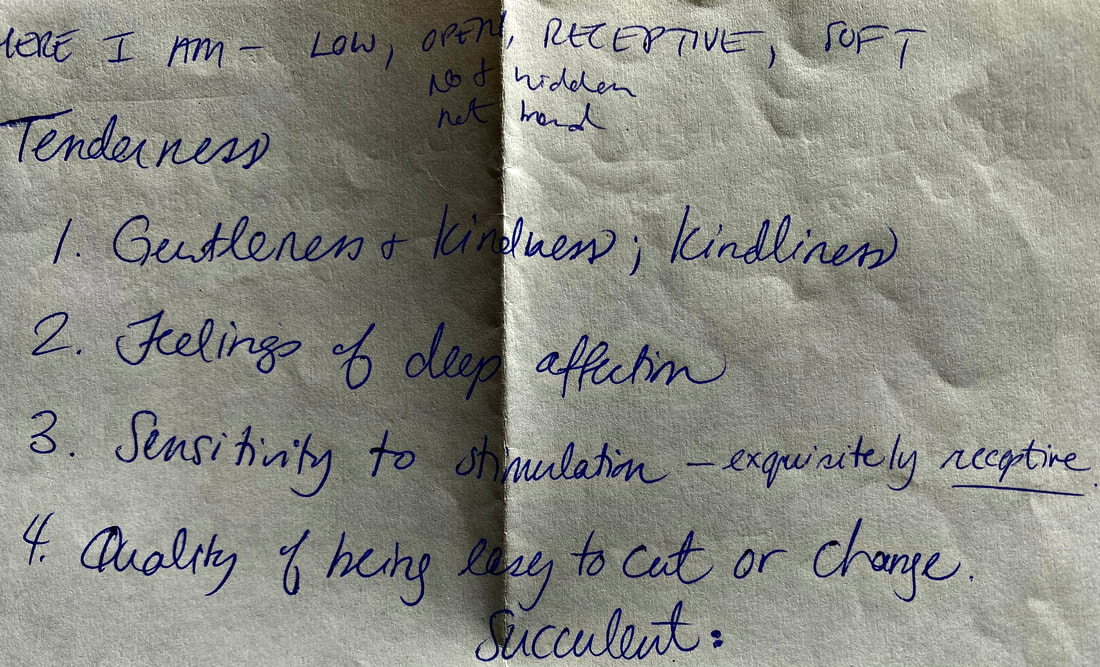 HERE I AM - LOW, OPEN, RECEPTIVE, SOFT
not hidden
not hard
Tenderness
1. Gentleness & kindness; kindliness
2. Feelings of deep affection
3. Sensitivity to stimulation - exquisitely receptive.
4. Quality of being easy to cut or change.
Succulent: